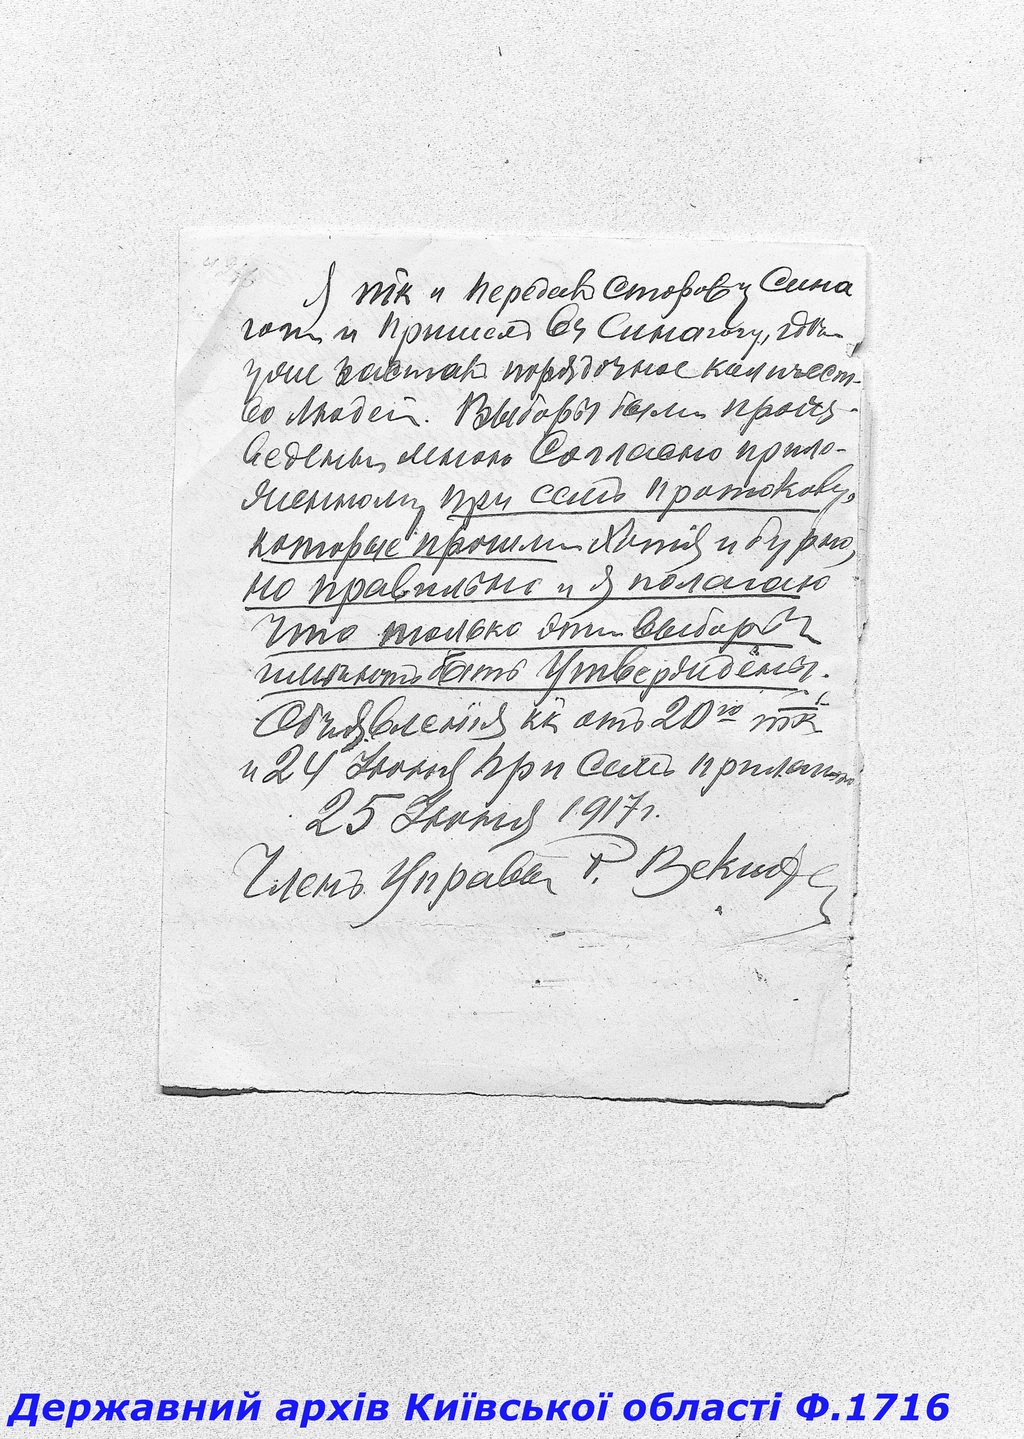 Я тк и передав сторожу Сина
гоги и пришел въ Синагогу, где
уже застав порядочное количест-
во людей. Выборы были произ-
ведены мною Согласно прило-
женному при семъ протоколу,
которые прошли хотя и бурно,
но правильно и я полагаю
что только эти выборы
быть Утверждены.
Объявления кк отъ 20го тк
и 24 Июня при семъ прилагаю
25 Июня 1917 г.
Членъ Управы Р.
Державний архів Київської області Ф.1716